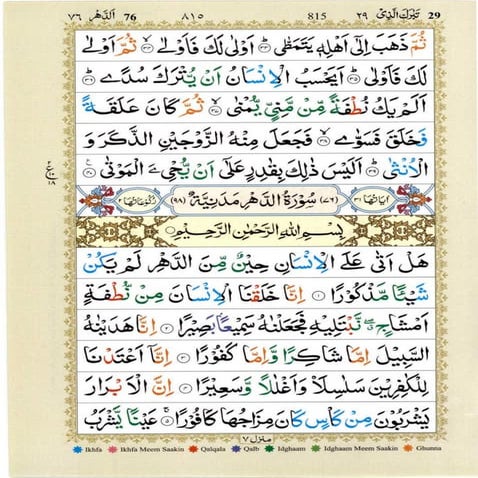 ٧٦ اَلدَّهْر 76 ٨١٥ 815 تَبٰرَكَ الَّذِىْ ٢٩ 29
ثُمَّ ذَهَبَ اِلٰٓى اَهْلِهٖ يَتَمَطّٰى ؕ‏ ٣٣ اَوْلٰى لَكَ فَاَوْلٰى ۙ‏ ٣٤ ثُمَّ اَوْلٰى
لَكَ فَاَوْلٰى ؕ‏ ٣٥ اَيَحْسَبُ الْاِنْسَانُ اَنْ يُّتْرَكَ سُدًى ؕ‏ ٣٦
اَلَمْ يَكُ نُطْفَةً مِّنْ مَّنِىٍّ يُّمْنٰى ۙ‏ ٣٧ ثُمَّ كَانَ عَلَقَةً
فَخَلَقَ فَسَوّٰى ۙ‏ ٣٨ فَجَعَلَ مِنْهُ الزَّوْجَيْنِ الذَّكَرَ وَ
الْاُنْثٰى ؕ‏ ٣٩ اَلَيْسَ ذٰلِكَ بِقٰدِرٍ عَلٰٓى اَنْ يُّحْیِۦَ الْمَوْتٰى ٤٠
اٰيَاتُهَا ٣١ (٧٦) سُوْرَةُ الدَّهْرِ مَدَنِيَّةٌ (٩٨) رُكُوْعَاتُهَا ٢
بِسْمِ اللّٰهِ الرَّحْمٰنِ الرَّحِيْمِ
هَلْ اَتٰى عَلَى الْاِنْسَانِ حِيْنٌ مِّنَ الدَّهْرِ لَمْ يَكُنْ
شَيْئًا مَّذْكُوْرًا ١ اِنَّا خَلَقْنَا الْاِنْسَانَ مِنْ نُّطْفَةٍ
اَمْشَاجٍ ۖ نَّبْتَلِيْهِ فَجَعَلْنٰهُ سَمِيْعًۢا بَصِيْرًا ٢ اِنَّا هَدَيْنٰهُ
السَّبِيْلَ اِمَّا شَاكِرًا وَّاِمَّا كَفُوْرًا ٣ اِنَّاۤ اَعْتَدْنَا
لِلْكٰفِرِيْنَ سَلٰسِلَا۟ وَاَغْلٰلًا وَّسَعِيْرًا ٤ اِنَّ الْاَبْرَارَ
يَشْرَبُوْنَ مِنْ كَاْسٍ كَانَ مِزَاجُهَا كَافُوْرًا ۚ‏ ٥ عَيْنًا يَّشْرَبُ
منزل ٧
Ikhfa Ikhfa Meem Saakin Qalqala Qalb Idghaam Idghaam Meem Saakin Ghunna